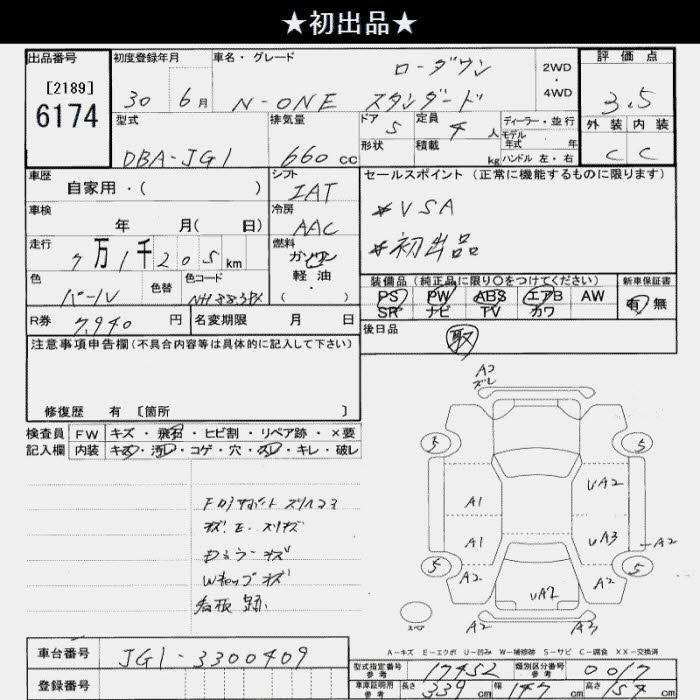 ★初出品★
出品番号 初度登録年月 車名・グレード 評価点
[2189] ローダウン 2WD・4WD
6174 30 6月 N-ONE スタンダード 3.5
型式 排気量 ドア 5 定員 4人 ディーラー・並行 外装 内装
DBA-JG1 660cc 形状 積載 kg モデル年式 年 ハンドル 左・右 C C
車歴 シフト セールスポイント (正常に機能するものに限ります)
自家用・( ) IAT
車検 冷房 *VSA
年 月( 日) AAC
走行 燃料 *初出品
7万1千205km ガソリン
色 色替 色コード 軽油・ 装備品 (純正品に限り○をつけてください) 新車保証書
パール NH883PX ( ) PS PW ABS エアB AW 有 無
SR ナビ TV カワ
R券 7,940円 名変期限 月 日 後日品
注意事項申告欄(不具合内容等は具体的に記入して下さい) 取
修復歴 有 [箇所 ]
検査員 FW キズ・飛石・ヒビ割・リペア跡・×要
記入欄 内装 キズ・汚レ・コゲ・穴・スレ・キレ・破レ
A2
ズレ
5 5
A1 UA2
A1 UA3 A2
5 5
A2 UA2 A2
スペア A2 A3
キズ
Wキャップ キズ
看板
A-キズ E-エクボ U-凹み W-補修跡 S-サビ C-腐食 XX-交換済
車台番号 JG1-3300409 型式指定番号 参考 17452 類別区分番号 参考 0017
登録番号 車庫証明用 参考 長さ 339cm 幅 147cm 高さ 157cm